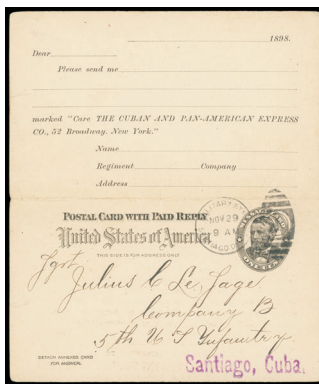 1898.
Dear
Please send me
marked "Care THE CUBAN AND PAN-AMERICAN EXPRESS
CO., 52 Broadway, New York."
Name
Regiment Company
Address
POSTAL CARD WITH PAID REPLY
United States of America
THIS SIDE IS FOR ADDRESS ONLY
NOV 29
9 AM
Julius C Le Sage
Company B
5th U S Infantry
Santiago, Cuba.
DETACH ANNEXED CARD
FOR ANSWER.